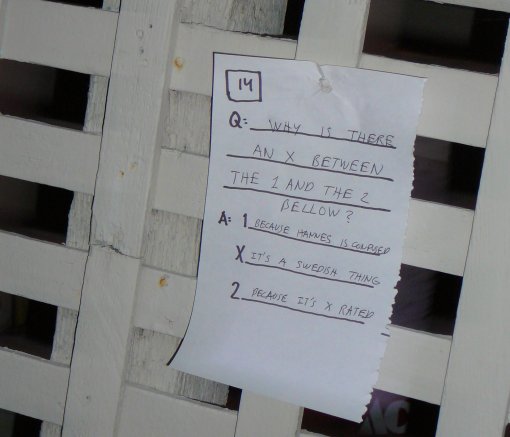 14
Q: WHY IS THERE
AN X BETWEEN
THE 1 AND THE 2
BELLOW?
A: 1 BECAUSE HANNES IS CONFUSED
X IT'S A SWEDISH THING
2 BECAUSE IT'S X RATED